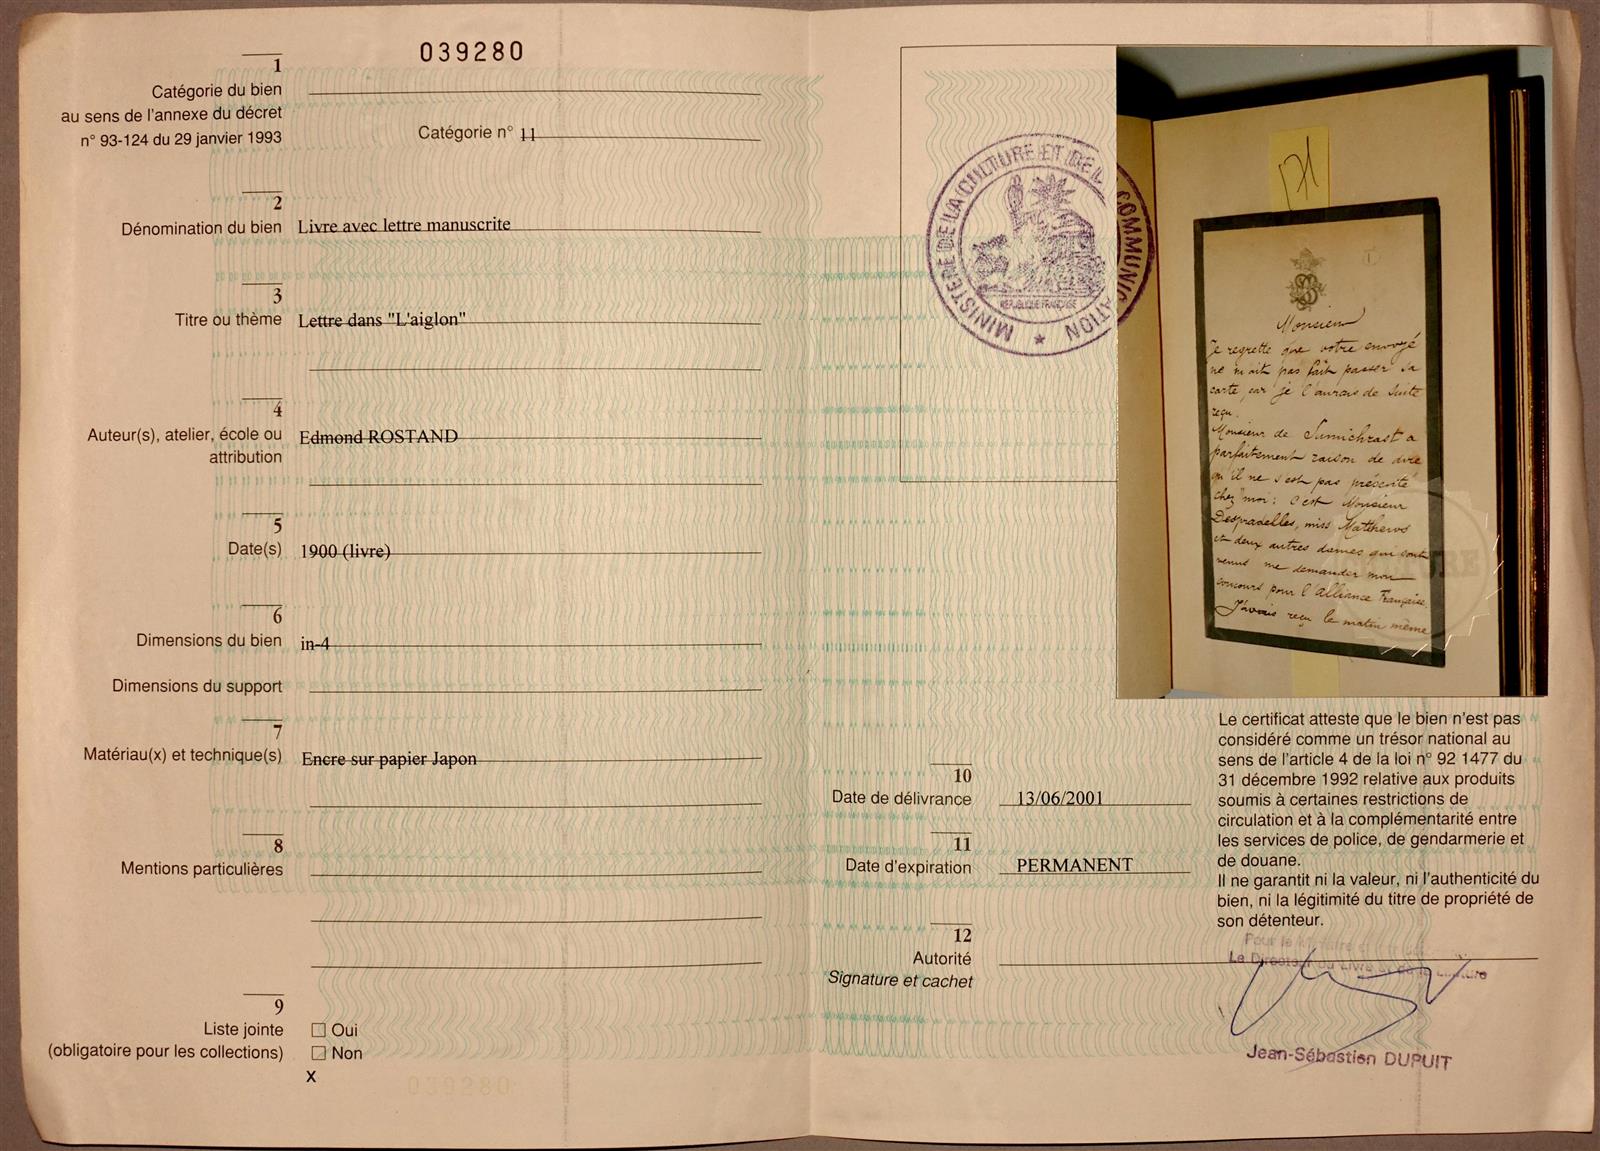 039280
1
Catégorie du bien
au sens de l'annexe du décret
n° 93-124 du 29 janvier 1993
Catégorie n° 11
2
Dénomination du bien Livre avec lettre manuscrite
3
Titre ou thème Lettre dans "L'aiglon"
4
Auteur(s), atelier, école ou
attribution
Edmond ROSTAND
5
Date(s) 1900 (livre)
6
Dimensions du bien in-4
Dimensions du support
7
Matériau(x) et technique(s) Encre sur papier Japon
8
Mentions particulières
9
Liste jointe
(obligatoire pour les collections)
Oui
Non
X
039280
MINISTERE DE LA CULTURE ET DE LA COMMUNICATION
REPUBLIQUE FRANÇAISE
171
1
Monsieur
Je regrette que votre envoyé
ne m'ait pas fait passer sa
carte, car je l'aurais de suite
reçu.
Monsieur de Sumichrast a
parfaitement raison de dire
qu'il ne s'est pas présenté
chez moi : c'est Monsieur
Despradelles, miss Matthews
et deux autres dames qui sont
venus me demander mon
concours pour l'Alliance Française.
J'avais reçu le matin même
10
Date de délivrance 13/06/2001
11
Date d'expiration PERMANENT
12
Autorité
Signature et cachet
Le certificat atteste que le bien n'est pas
considéré comme un trésor national au
sens de l'article 4 de la loi n° 92 1477 du
31 décembre 1992 relative aux produits
soumis à certaines restrictions de
circulation et à la complémentarité entre
les services de police, de gendarmerie et
de douane.
Il ne garantit ni la valeur, ni l'authenticité du
bien, ni la légitimité du titre de propriété de
son détenteur.
Pour le Ministre et par
Le Directeur du Livre et de la Lecture
Jean-Sébastien DUPUIT